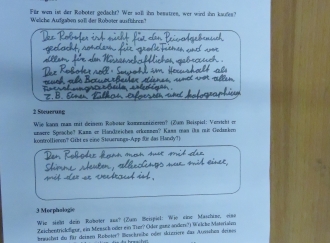 Für wen ist der Roboter gedacht? Wer soll ihn benutzen, wer wird ihn kaufen?
Welche Aufgaben soll der Roboter ausführen?
Der Roboter ist nicht für den Privatgebrauch
gedacht, sondern für große Firmen und vor
allem für den Wissenschaftlichen gebrauch.
Der Roboter soll Sowohl im Haushalt als
auch als Bauarbeiter dienen und vor allem
Forschungsarbeiten erledigen.
Z.B. Einen Vulkan erforschen und fotographieren
2 Steuerung
Wie kann man mit deinem Roboter kommunizieren? (Zum Beispiel: Versteht er
unsere Sprache? Kann er Handzeichen erkennen? Kann man ihn mit Gedanken
kontrollieren? Gibt es eine Steuerungs-App für das Handy?)
Den Roboter kann man nur mit die
Stimme steuern, allerdings nur mit einer,
mit der er vertraut ist.
3 Morphologie
Wie sieht dein Roboter aus? (Zum Beispiel: Wie eine Maschine, eine
Zeichentrickfigur, ein Mensch oder ein Tier? Oder ganz anders?) Welche Materialien
brauchst du für deinen Roboter? Beschreibe oder skizziere das Aussehen deines